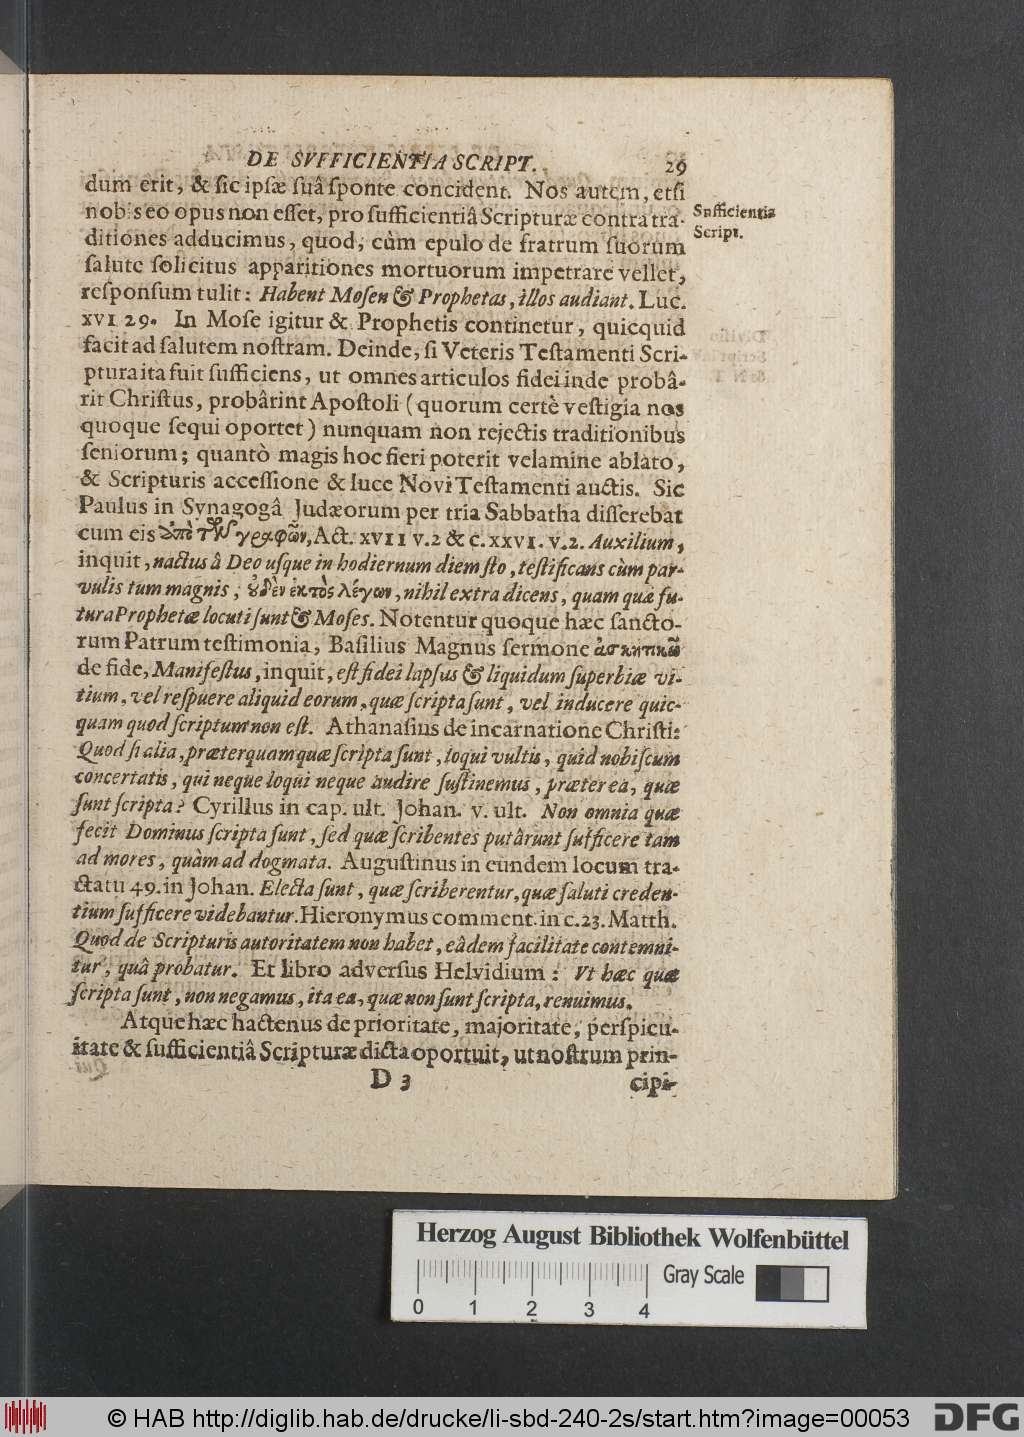 DE SVFFICIENTIA SCRIPT. 29
dum erit, & sic ipsæ suâ sponte concident. Nos autem, etsi
nobis eo opus non esset, pro sufficientiâ Scripturæ contra tra-
Sufficientia
Script.
ditiones adducimus, quod, cùm epulo de fratrum suorum
salute solicitus apparitiones mortuorum impetrare vellet,
responsum tulit: Habent Mosen & Prophetas, illos audiant. Luc.
XVI 29. In Mose igitur & Prophetis continetur, quicquid
facit ad salutem nostram. Deinde, si Veteris Testamenti Scri-
ptura ita fuit sufficiens, ut omnes articulos fidei inde probâ-
rit Christus, probârint Apostoli (quorum certè vestigia nos
quoque sequi oportet) nunquam non rejectis traditionibus
seniorum; quantò magis hoc fieri poterit velamine ablato,
& Scripturis accessione & luce Novi Testamenti auctis. Sic
Paulus in Synagogâ Judæorum per tria Sabbatha disserebat
cum eis ἀπὸ τῶν γραφῶν, Act. XVII v.2 & c. XXVI. v.2. Auxilium,
inquit, nactus â Deo usque in hodiernum diem sto, testificans cùm par-
vulis tum magnis, οὐδὲν ἐκτὸς λέγων, nihil extra dicens, quam quæ fu-
tura Prophetæ locuti sunt & Moses. Notentur quoque hæc sancto-
rum Patrum testimonia, Basilius Magnus sermone ἀσκητικῶ
de fide, Manifestus, inquit, est fidei lapsus & liquidum superbiæ vi-
tium, vel respuere aliquid eorum, quæ scripta sunt, vel inducere quic-
quam quod scriptum non est. Athanasius de incarnatione Christi:
Quod si alia, præterquam quæ scripta sunt, loqui vultis, quid nobiscum
concertatis, qui neque loqui neque audire sustinemus, præter ea, quæ
sunt scripta? Cyrillus in cap. ult. Johan. v. ult. Non omnia quæ
fecit Dominus scripta sunt, sed quæ scribentes putârunt sufficere tam
ad mores, quàm ad dogmata. Augustinus in eundem locum tra-
ctatu 49. in Johan. Electa sunt, quæ scriberentur, quæ saluti creden-
tium sufficere videbantur. Hieronymus comment. in c. 23. Matth.
Quod de Scripturis autoritatem non habet, eâdem facilitate contemni-
tur, quâ probatur. Et libro adversus Helvidium: Vt hæc quæ
scripta sunt, non negamus, ita ea, quæ non sunt scripta, renuimus.
Atque hæc hactenus de prioritate, majoritate, perspicu-
itate & sufficientiâ Scripturæ dicta oportuit, ut nostrum prin-
D 3 cipi-
Herzog August Bibliothek Wolfenbüttel
Gray Scale
0 1 2 3 4
© HAB http://diglib.hab.de/drucke/li-sbd-240-2s/start.htm?image=00053 DFG